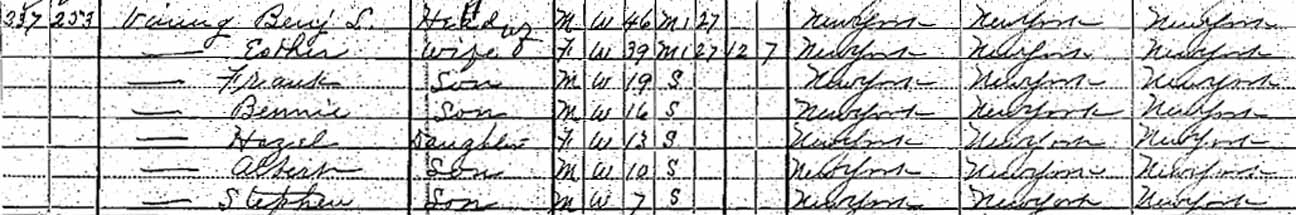 237 253 Vining Benj S. Head M W 46 M1 27 New York New York New York
— Esther Wife F W 39 M1 27 12 7 New York New York New York
— Frank Son M W 19 S New York New York New York
— Bennie Son M W 16 S New York New York New York
— Hazel Daughter F W 13 S New York New York New York
— Albert Son M W 10 S New York New York New York
— Stephen Son M W 7 S New York New York New York